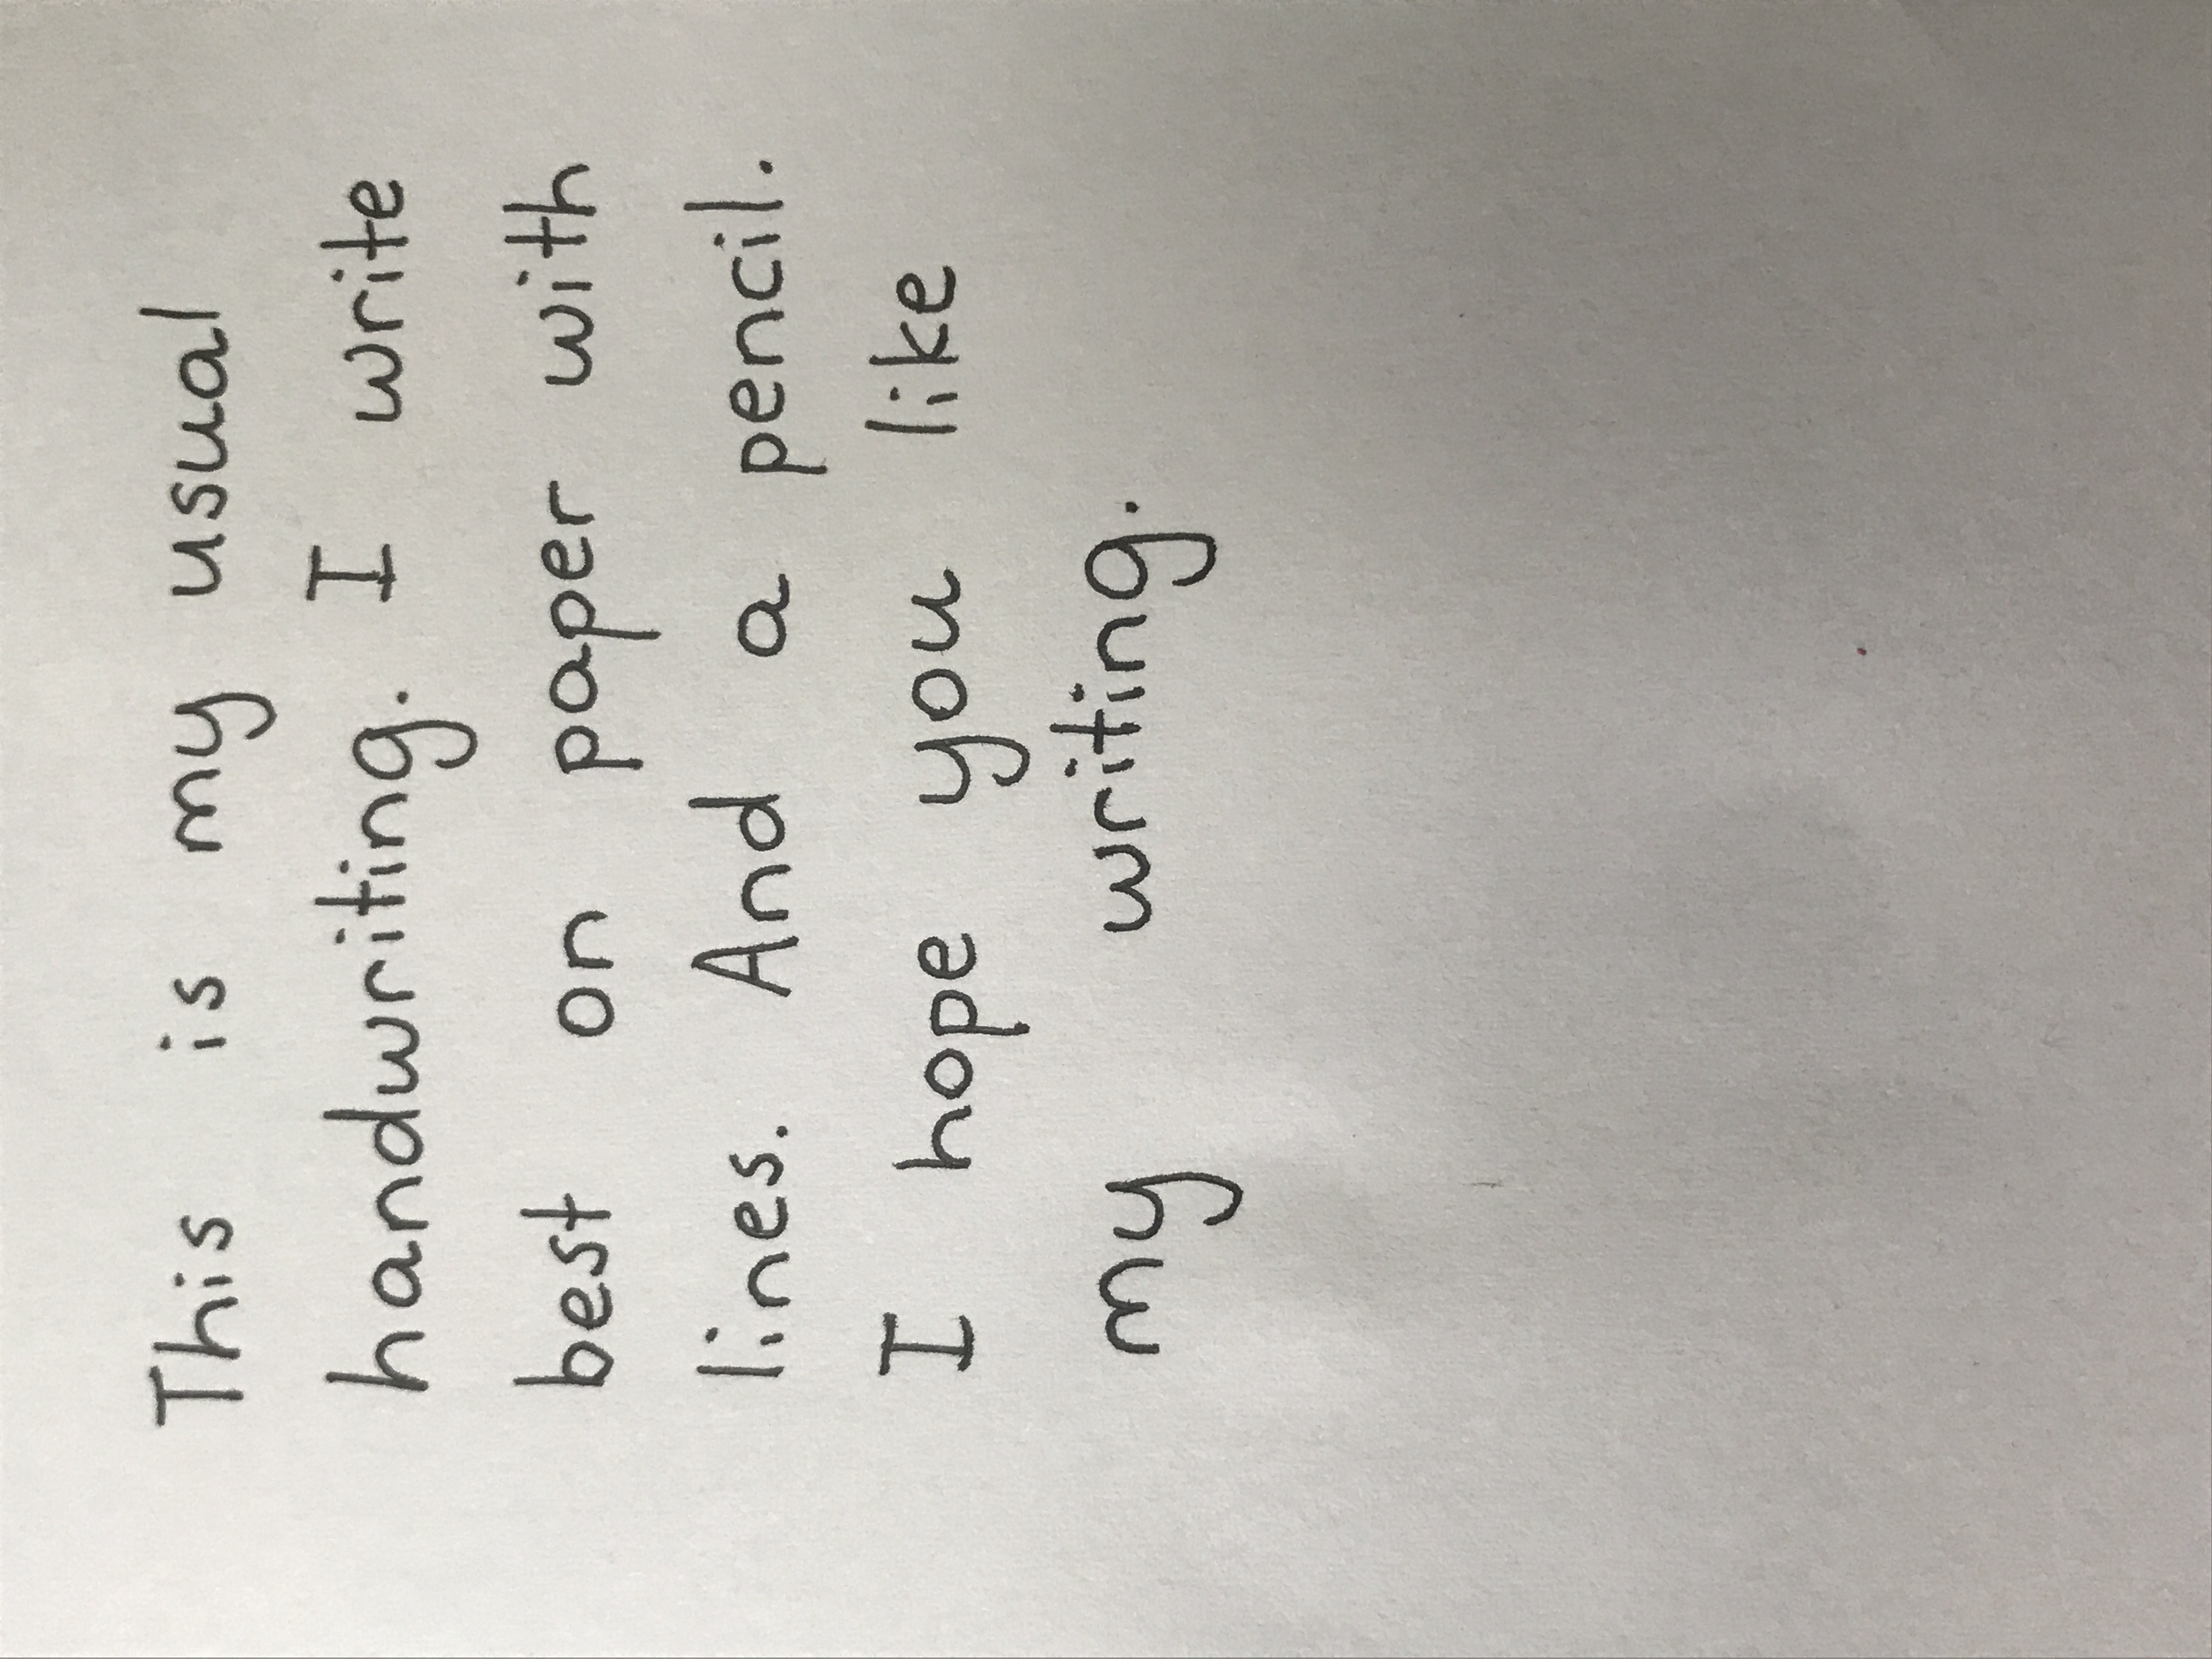 This is my usual
handwriting. I write
best on paper with
lines. And a pencil.
I hope you like
my writing.